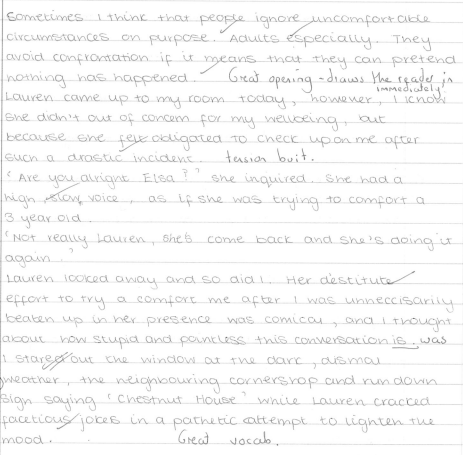 Sometimes I think that people ignore uncomfortable
circumstances on purpose. Adults especially. They
avoid confrontation if it means that they can pretend
nothing has happened. Great opening - draws the reader in
immediately
Lauren came up to my room today, however, I know
she didn't out of concern for my wellbeing, but
because she felt obligated to check up on me after
such a drastic incident. tension built.
'Are you alright Elsa?' she inquired. She had a
high slow voice, as if she was trying to comfort a
3 year old.
'Not really Lauren, she's come back and she's doing it
again.'
Lauren looked away and so did I. Her destitute
effort to try a comfort me after I was unneccisarily
beaten up in her presence was comical, and I thought
about how stupid and pointless this conversation is. was
I stared out the window at the dark, dismal
weather, the neighbouring cornershop and run down
sign saying 'Chestnut House' while Lauren cracked
facetious jokes in a pathetic attempt to lighten the
mood. Great vocab.